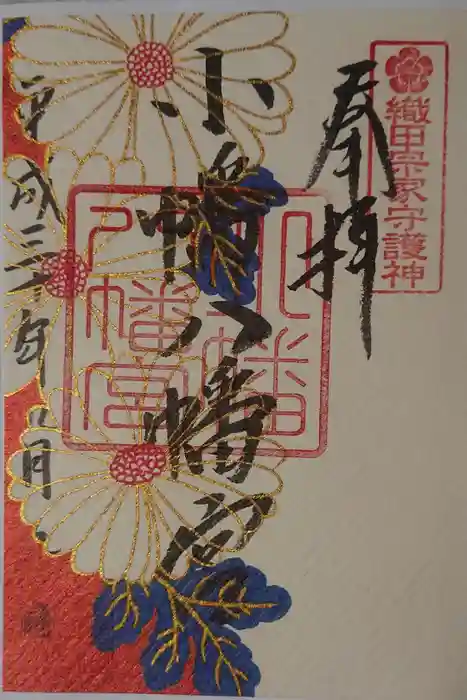 織田宗家守護神
奉拝
小幡八幡宮
小幡
八幡宮
平成三十年八月